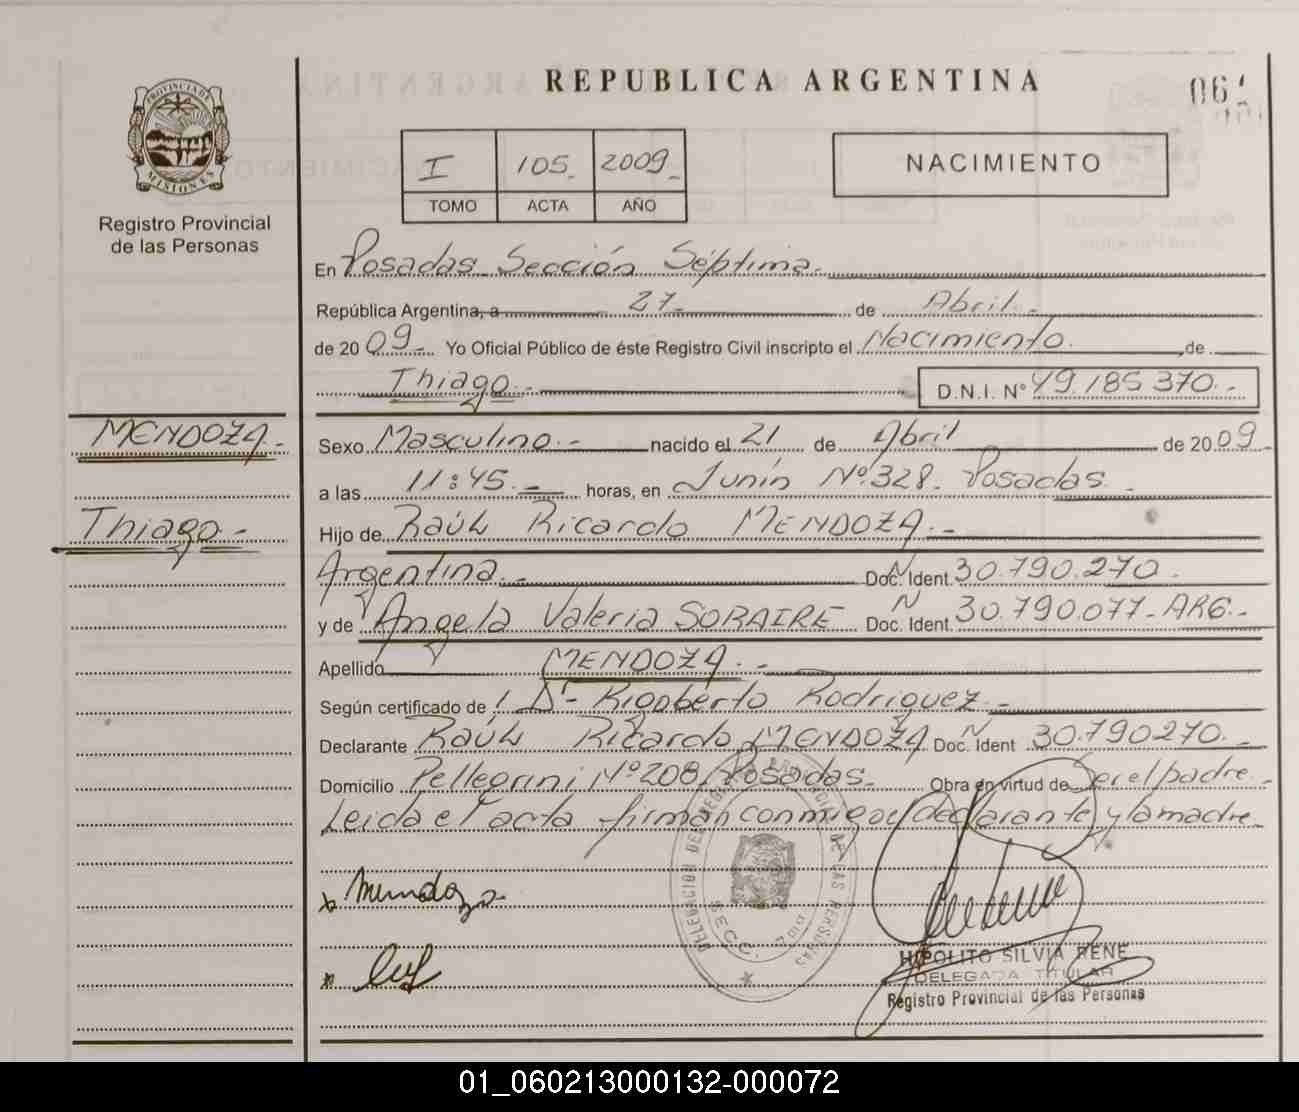 REPUBLICA ARGENTINA
PROVINCIA DE
MISIONES
Registro Provincial
de las Personas
I 105 2009
TOMO ACTA AÑO
NACIMIENTO
En Posadas Sección Séptima.
República Argentina, a 27 de Abril.
de 2009 Yo Oficial Público de éste Registro Civil inscripto el Nacimiento. de
Thiago. D.N.I. Nº 49.185370.-
MENDOZA.-
Thiago.-
Sexo Masculino.- nacido el 21 de Abril de 2009
a las 11:45.- horas, en Junín Nº.328. Posadas.-
Hijo de RAÚL Ricardo MENDOZA.-
Argentina.- Doc. Ident N 30.790.270.
y de Angela Valeria SORAIRE Doc. Ident N 30.790.077-ARG.-
Apellido MENDOZA.-
Según certificado de Dr- Rigoberto Rodriguez.-
Declarante RAÚL Ricardo MENDOZA Doc. Ident N 30.790270.-
Domicilio Pellegrini Nº208. Posadas.- Obra en virtud de Ser el padre.-
Leida el acta firman conmigo el declarante y la madre.
x Mendoza.
DELEGACION DEL REGISTRO PROVINCIAL DE LAS PERSONAS
SECC.
HIPOLITO SILVIA RENE
DELEGADA TITULAR
Registro Provincial de las Personas
01_060213000132-000072